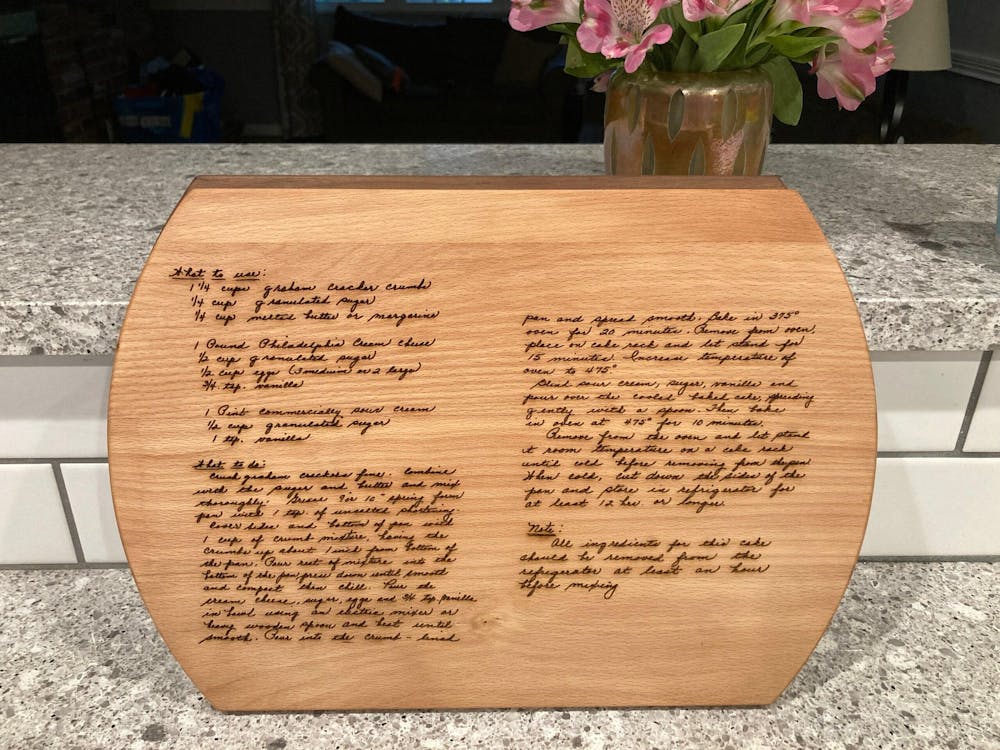 What to use:
1 1/4 cups graham cracker crumbs
1/4 cup granulated sugar
1/4 cup melted butter or margarine
1 Pound Philadelphia Cream cheese
1/2 cup granulated sugar
1/2 cup eggs (3 medium or 2 large)
3/4 tsp. vanilla
1 Pint commercially sour cream
1/4 cup granulated sugar
1 tsp. vanilla
What to do:
Crush graham crackers fine. Combine
with the sugar and butter and mix
thoroughly. Grease 9 or 10" spring form
pan with 1 tsp. of unsalted shortening.
Cover sides and bottom of pan with
1 cup of crumb mixture, having the
crumbs up about 1 inch from bottom of
the pan. Pour rest of mixture into the
bottom of the pan, press down until smooth
and compact then chill. Put the
cream cheese, sugar, eggs and 3/4 tsp. vanilla
in bowl using an electric mixer or
heavy wooden spoon and beat until
smooth. Pour into the crumb - lined
pan and spread smooth. Bake in 375°
oven for 20 minutes. Remove from oven,
place on cake rack and let stand for
15 minutes. Increase temperature of
oven to 475°
Blend sour cream, sugar, vanilla and
pour over the cooled baked cake, spreading
gently with a spoon. Then bake
in oven at 475° for 10 minutes.
Remove from the oven and let stand
at room temperature on a cake rack
until cold before removing from the pan.
When cold, cut down the sides of the
pan and store in refrigerator for
at least 12 hrs. or longer.
Note:
All ingredients for this cake
should be removed from the
refrigerator at least an hour
before mixing